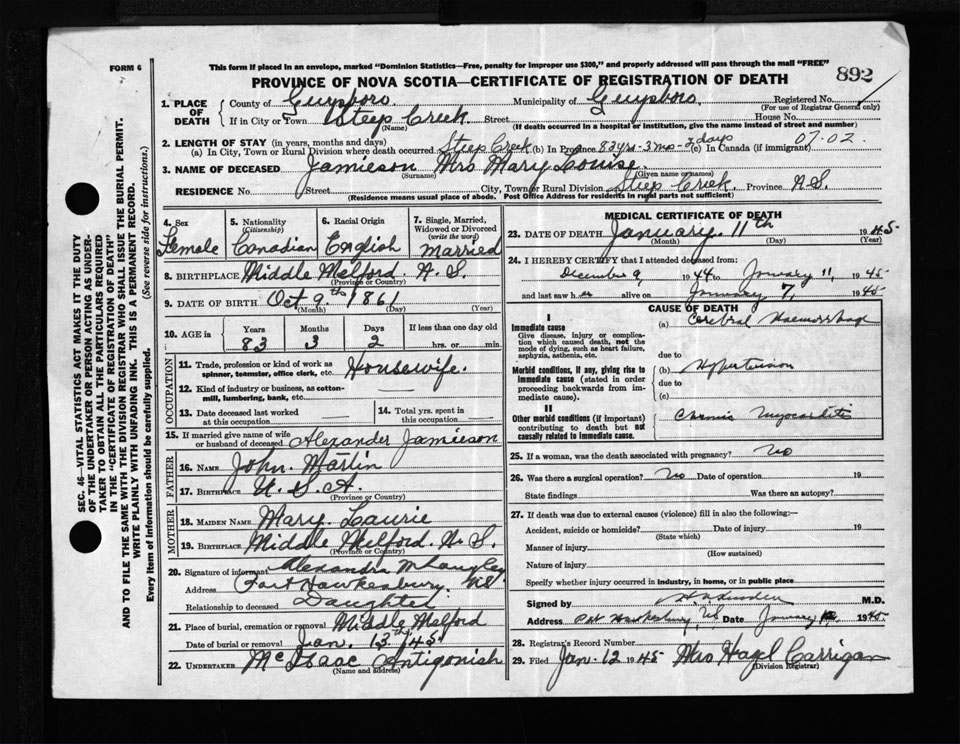 FORM 6
This form if placed in an envelope, marked "Dominion Statistics—Free, penalty for improper use $300," and properly addressed will pass through the mail "FREE"
PROVINCE OF NOVA SCOTIA—CERTIFICATE OF REGISTRATION OF DEATH
892
1. PLACE OF DEATH
County of Guysboro. Municipality of Guysboro. Registered No.
(For use of Registrar General only)
If in City or Town Steep Creek Street House No.
(Name) (If death occurred in a hospital or institution, give the name instead of street and number)
2. LENGTH OF STAY (in years, months and days)
(a) In City, Town or Rural Division where death occurred Steep Creek (b) In Province 83 yrs-3 mo-2 days (c) In Canada (if immigrant) 07.02
3. NAME OF DECEASED Jamieson Mrs Mary Louise.
(Surname) (Given name or names)
RESIDENCE No. Street City, Town or Rural Division Steep Creek. Province N.S.
(Residence means usual place of abode. Post Office Address for residents in rural parts not sufficient)
4. Sex
Female
5. Nationality
(Citizenship)
Canadian
6. Racial Origin
English
7. Single, Married, Widowed or Divorced
(write the word)
Married
8. BIRTHPLACE Middle Melford. N.S.
(Province or Country)
9. DATE OF BIRTH Oct 9th 1861
(Month) (Day) (Year)
10. AGE in
Years Months Days If less than one day old
83 3 2 hrs. or min.
OCCUPATION
11. Trade, profession or kind of work as spinner, teamster, office clerk, etc. Housewife.
12. Kind of industry or business, as cotton-mill, lumbering, bank, etc.
13. Date deceased last worked at this occupation
14. Total yrs. spent in this occupation
15. If married give name of wife or husband of deceased Alexander Jamieson
FATHER
16. NAME John. Martin
17. BIRTHPLACE U.S.A.
(Province or Country)
MOTHER
18. MAIDEN NAME Mary. Laurie
19. BIRTHPLACE Middle Melford. N.S.
(Province or Country)
20. Signature of informant Alexandra M Langley
Address Port Hawkesbury. NS
Relationship to deceased Daughter
21. Place of burial, cremation or removal Middle Melford
Date of burial or removal Jan. 13th 45
22. UNDERTAKER McIsaac Antigonish
(Name and address)
MEDICAL CERTIFICATE OF DEATH
23. DATE OF DEATH January. 11th 1945
(Month) (Day) (Year)
24. I HEREBY CERTIFY that I attended deceased from:
December 9, 1944 to January 11, 1945
and last saw her alive on January 7, 1945
CAUSE OF DEATH
I
Immediate cause
Give disease, injury or complication which caused death, not the mode of dying, such as heart failure, asphyxia, asthenia, etc.
(a) Cerebral Haemorrhage
due to
Morbid conditions, if any, giving rise to immediate cause (stated in order proceeding backwards from immediate cause).
(b) Hypertension
due to
(c)
II
Other morbid conditions (if important) contributing to death but not causally related to immediate cause.
Chronic Myocarditis
25. If a woman, was the death associated with pregnancy? No
26. Was there a surgical operation? No Date of operation 19
State findings Was there an autopsy?
27. If death was due to external causes (violence) fill in also the following:—
Accident, suicide or homicide? Date of injury 19
(State which)
Manner of injury
(How sustained)
Nature of injury
Specify whether injury occurred in industry, in home, or in public place
Signed by M.D.
Address Port Hawkesbury, NS Date January 1945
28. Registrar's Record Number
29. Filed Jan-12 1945 Mrs Hazel Carrigan
(Division Registrar)
SEC. 46—VITAL STATISTICS ACT MAKES IT THE DUTY
OF THE UNDERTAKER OR PERSON ACTING AS UNDER-
TAKER TO OBTAIN ALL THE PARTICULARS REQUIRED
IN THE "CERTIFICATE OF REGISTRATION OF DEATH"
AND TO FILE THE SAME WITH THE DIVISION REGISTRAR WHO SHALL ISSUE THE BURIAL PERMIT.
WRITE PLAINLY WITH UNFADING INK. THIS IS A PERMANENT RECORD.
Every item of information should be carefully supplied. (See reverse side for instructions.)